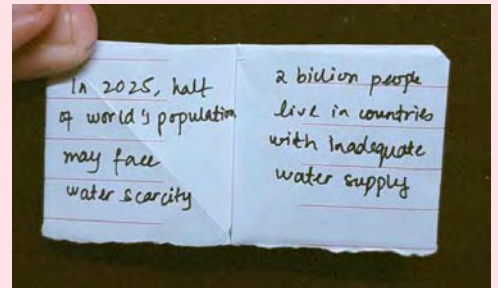 In 2025, half
of world's population
may face
water scarcity
2 billion people
live in countries
with inadequate
water supply